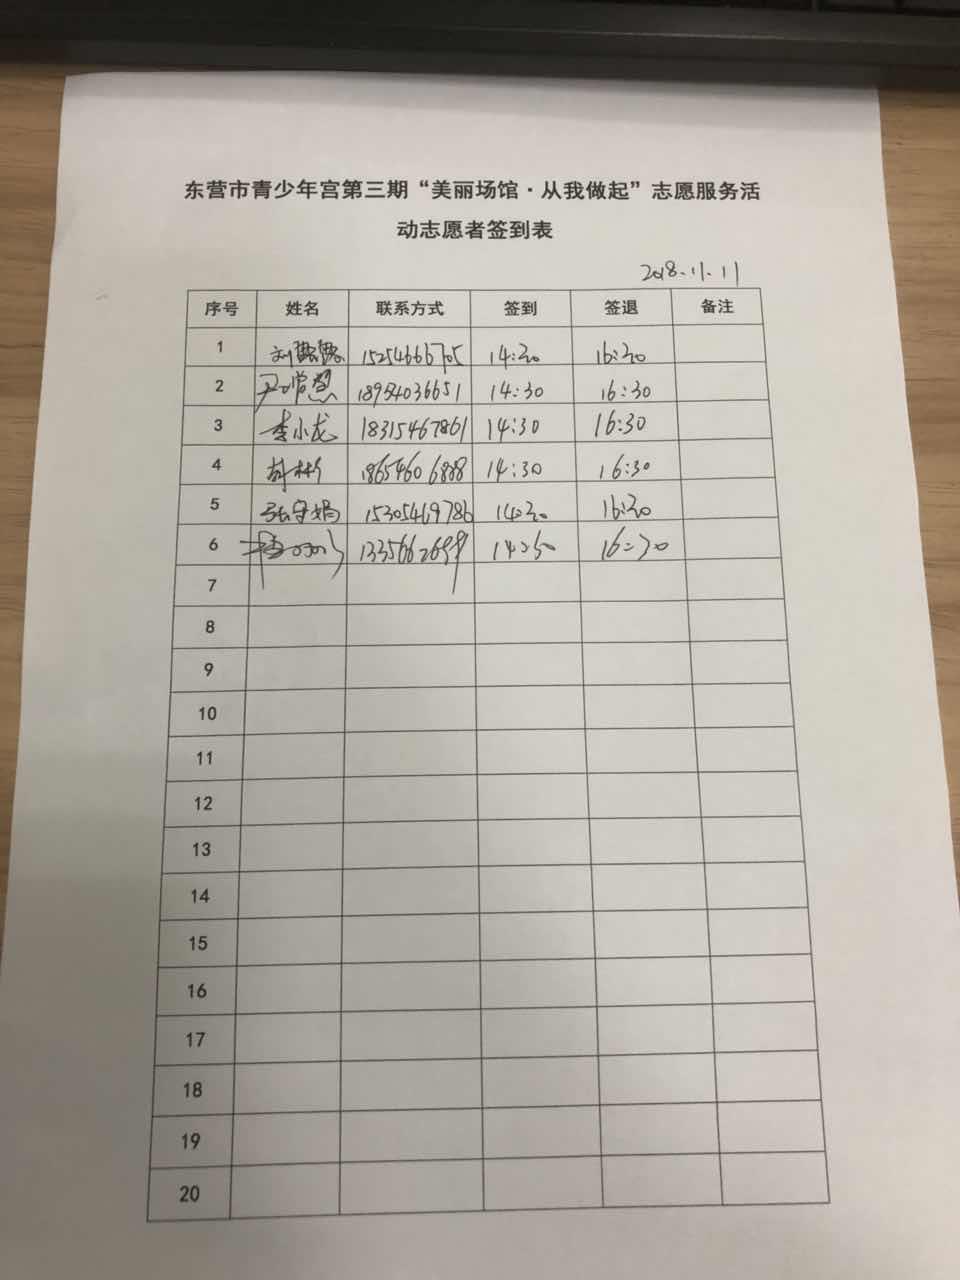 东营市青少年宫第三期“美丽场馆·从我做起”志愿服务活
动志愿者签到表
2018.11.11
序号 姓名 联系方式 签到 签退 备注
1 刘露露 15254666705 14:30 16:30
2 18954036651 14:30 16:30
3 李小龙 18315467861 14:30 16:30
4 18654606888 14:30 16:30
5 张守娟 15305469786 14:30 16:30
6 14:30 16:30
7
8
9
10
11
12
13
14
15
16
17
18
19
20